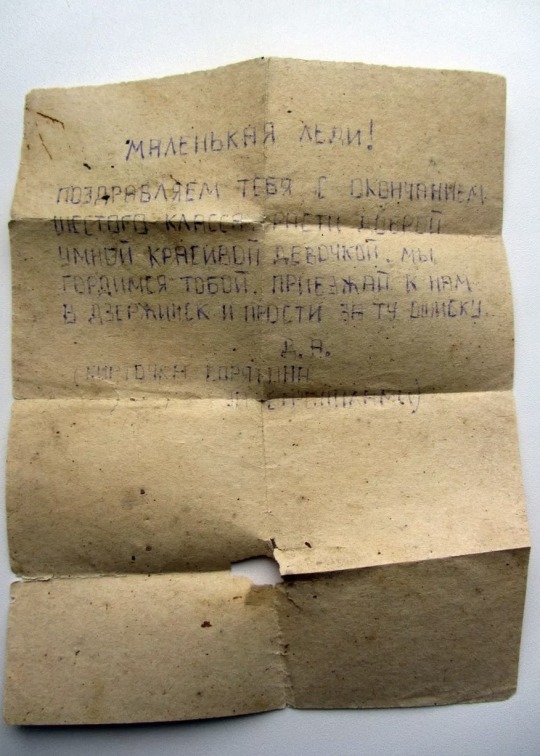 МАЛЕНЬКАЯ ЛЕЛИ!
ПОЗДРАВЛЯЕМ ТЕБЯ С ОКОНЧАНИЕМ
ШЕСТОГО КЛАССА. РАСТИ ДОБРОЙ
УМНОЙ КРАСИВОЙ ДЕВОЧКОЙ. МЫ
ГОРДИМСЯ ТОБОЙ. ПРИЕЗЖАЙ К НАМ
В ДЗЕРЖИНСК И ПРОСТИ ЗА ТУ
Д. А.